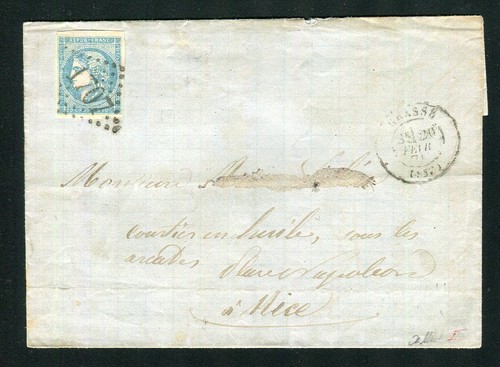 REPUB·FRANC
1707
GRASSE
20
FEVR
71
Monsieur
courtier en huile, sous les
arcades place Napoleon
à Nice